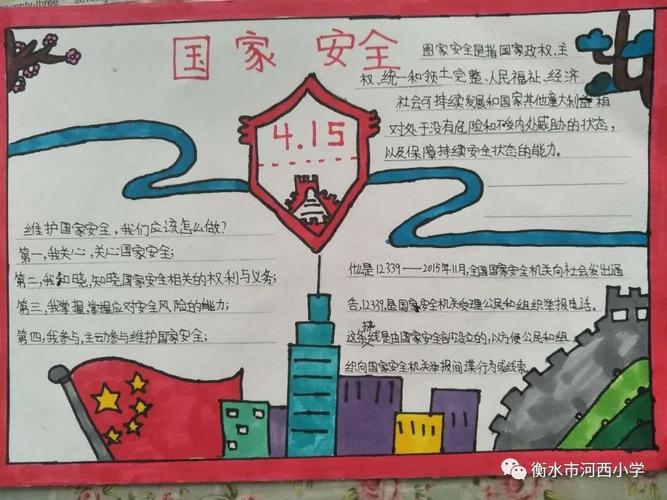 seventy-three
国家 安全
国家安全是指国家政权、主
权、统一和领土完整、人民福祉、经济
社会可持续发展和国家其他重大利益相
对处于没有危险和不受内外威胁的状态，
以及保障持续安全状态的能力。
4.15
维护国家安全，我们应该怎么做？
第一，我关心，关心国家安全；
第二，我知晓，知晓国家安全相关的权利与义务；
第三，我掌握，掌握应对安全风险的能力；
第四，我参与，主动参与维护国家安全；
它是12339——2015年11月，全国国家安全机关向社会发出通
告，12339，是国家安全机关受理公民和组织举报电话。
这条热线是由国家安全部设立的，以方便公民和组
织向国家安全机关举报间谍行为或线索。
衡水市河西小学